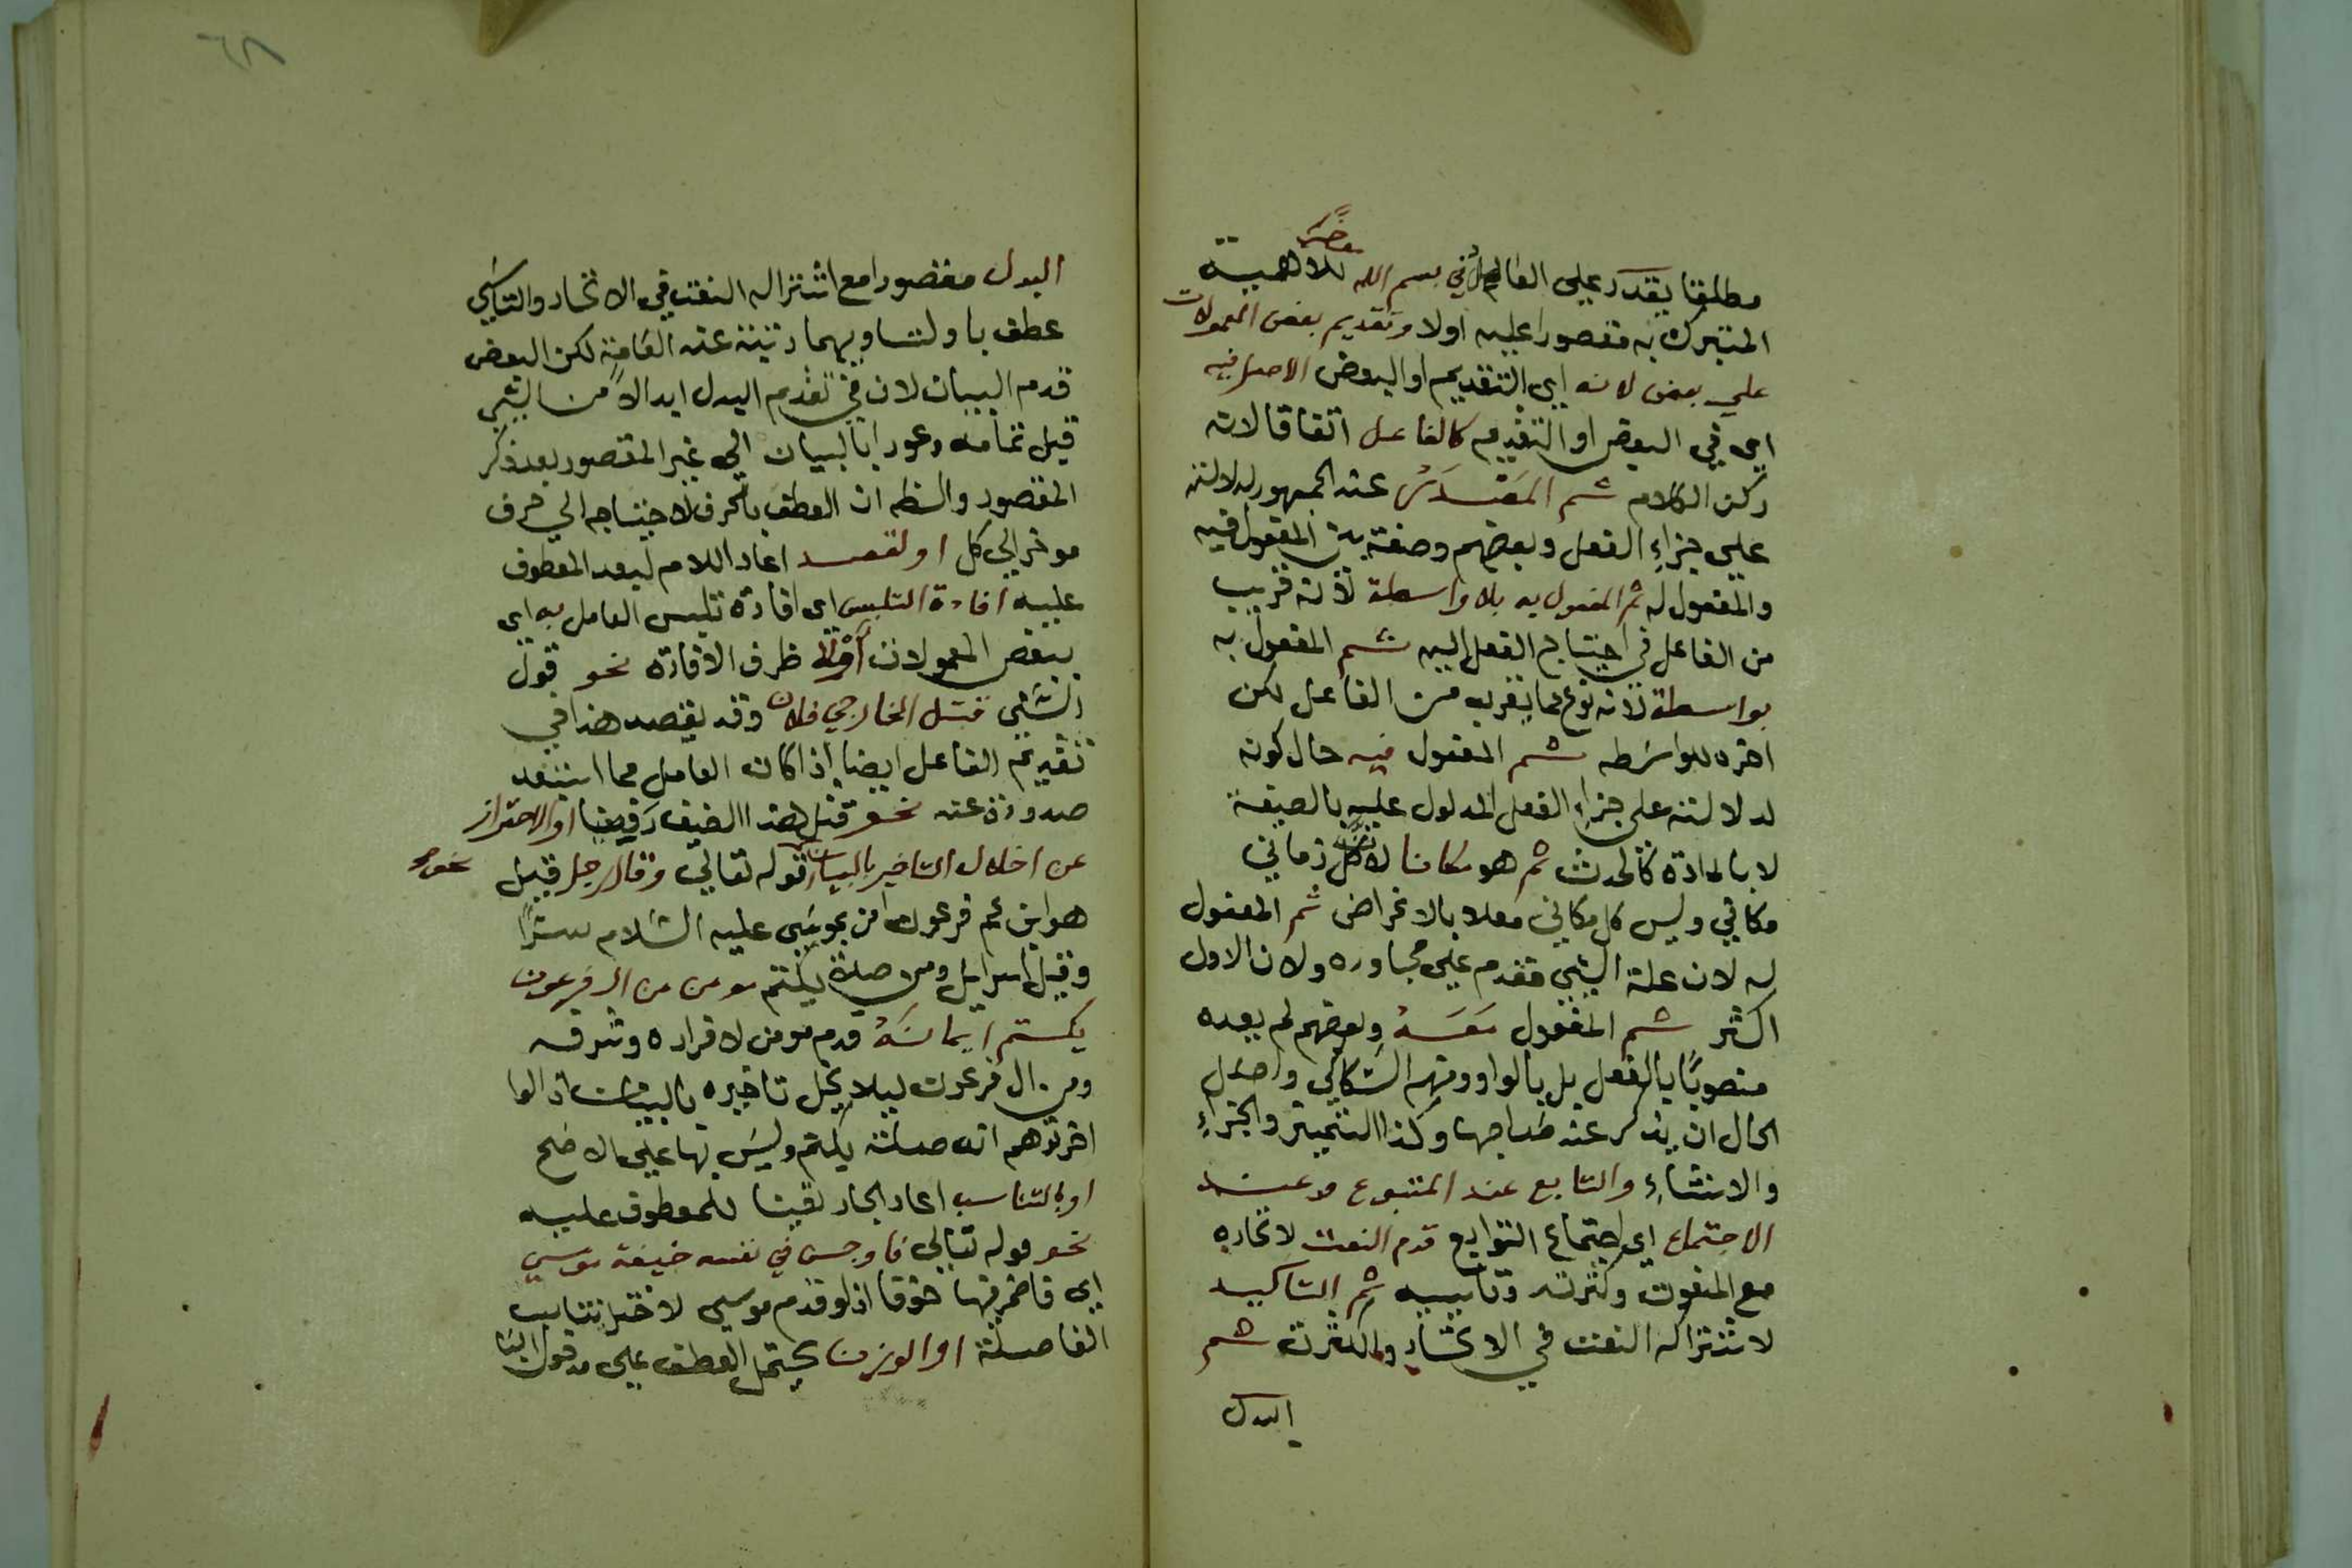 مؤخرا
مطلقا يقدر على الفاعل في بسم الله للاهمية
المتبرك به مقصورا عليه اولا وتقديم بعض المعمولات
على بعض لانه اي التقديم او البعض الاصل فيه
اي في البعض او التقديم كالفاعل اتفاقا لانه
ركن الكلام ثم المصدر عند الجمهور لدلالته
على جزاء الفعل وبعضهم وضعه بين المفعول فيه
والمفعول له ثم المفعول به بلا واسطة لانه قريب
من الفاعل في احتياج الفعل اليه ثم المفعول به
بواسطة لانه نوع مما يقرب من الفاعل لكن
اخره للواسطه ثم المفعول فيه حال كونه
لدلالته على جزاء الفعل المدلول عليه بالصيغة
لا بالمادة كالحدث ثم هو مكانا لان كل زماني
مكاني وليس كل مكاني معلا بالاغراض ثم المفعول
له لان علة الشي مقدم على مجاوره ولان الاول
اكثر ثم المفعول معه وبعضهم لم يعده
منصوبا بالفعل بل بالواو ومنهم السكاكي واصل
الحال ان يذكر عند صاحبها وكذا التمييز والجزاء
والاستثناء والتابع عند المتبوع وعند
الاجتماع اي اجتماع التوابع قدم النعت لاتحاده
مع المنعوت وكثرته وتاسيسه ثم التاكيد
لاشتراكه النعت في الاتحاد والكثرة ثم
البدل
٦٨
البدل مقصورا مع اشتراكه النعت في الاتحاد والتاسي
عطف باو لتساويهما رتبة عند العامة لكن البعض
قدم البيان لان في تقدم البدل ابدالا من الشي
قبل تمامه وعودا بالبيان الى غير المقصور بعد ذكر
المقصود والنظم ان العطف بالحرف لاحتياجه الى حرف
موخر الى كل او لقصد اعاد اللام لبعد المعطوف
عليه افادة التلبس اي افادة تلبس العامل به اي
ببعض المعمولات اولا ظرف الافادة نحو قول
الشتى قتل الخارجي فلان وقد يقصد هذا في
تقديم الفاعل ايضا اذا كان العامل مما استبعد
صدوره عنه نحو قتل هذا الضيف رقيقا او الاحتراز
عن اخلال التاخير بالبيان نحو قوله تعالى وقال رجل قيل
هو ابن عم فرعون امن بموسى عليه السلام سرا
وقيل اسرايل ومن صلة يكتم مومن من ال فرعون
يكتم ايمانه قدم مومن لاقراره وشرفه
ومن ال فرعون ليلا يخل تاخيره بالبيان اذ لوا
اخر توهم انه صلة يكتم وليس بها على الاصح
او بالتناسب اعاد الجار تقيبا للمعطوف عليه
نحو قوله تعالى فاوجس في نفسه خيفة موسى
اي فاضمر فيها خوفا اذ لو قدم موسى لاختل تناسب
الفاصلة او الوزن يحتمل العطف على مدخول البا